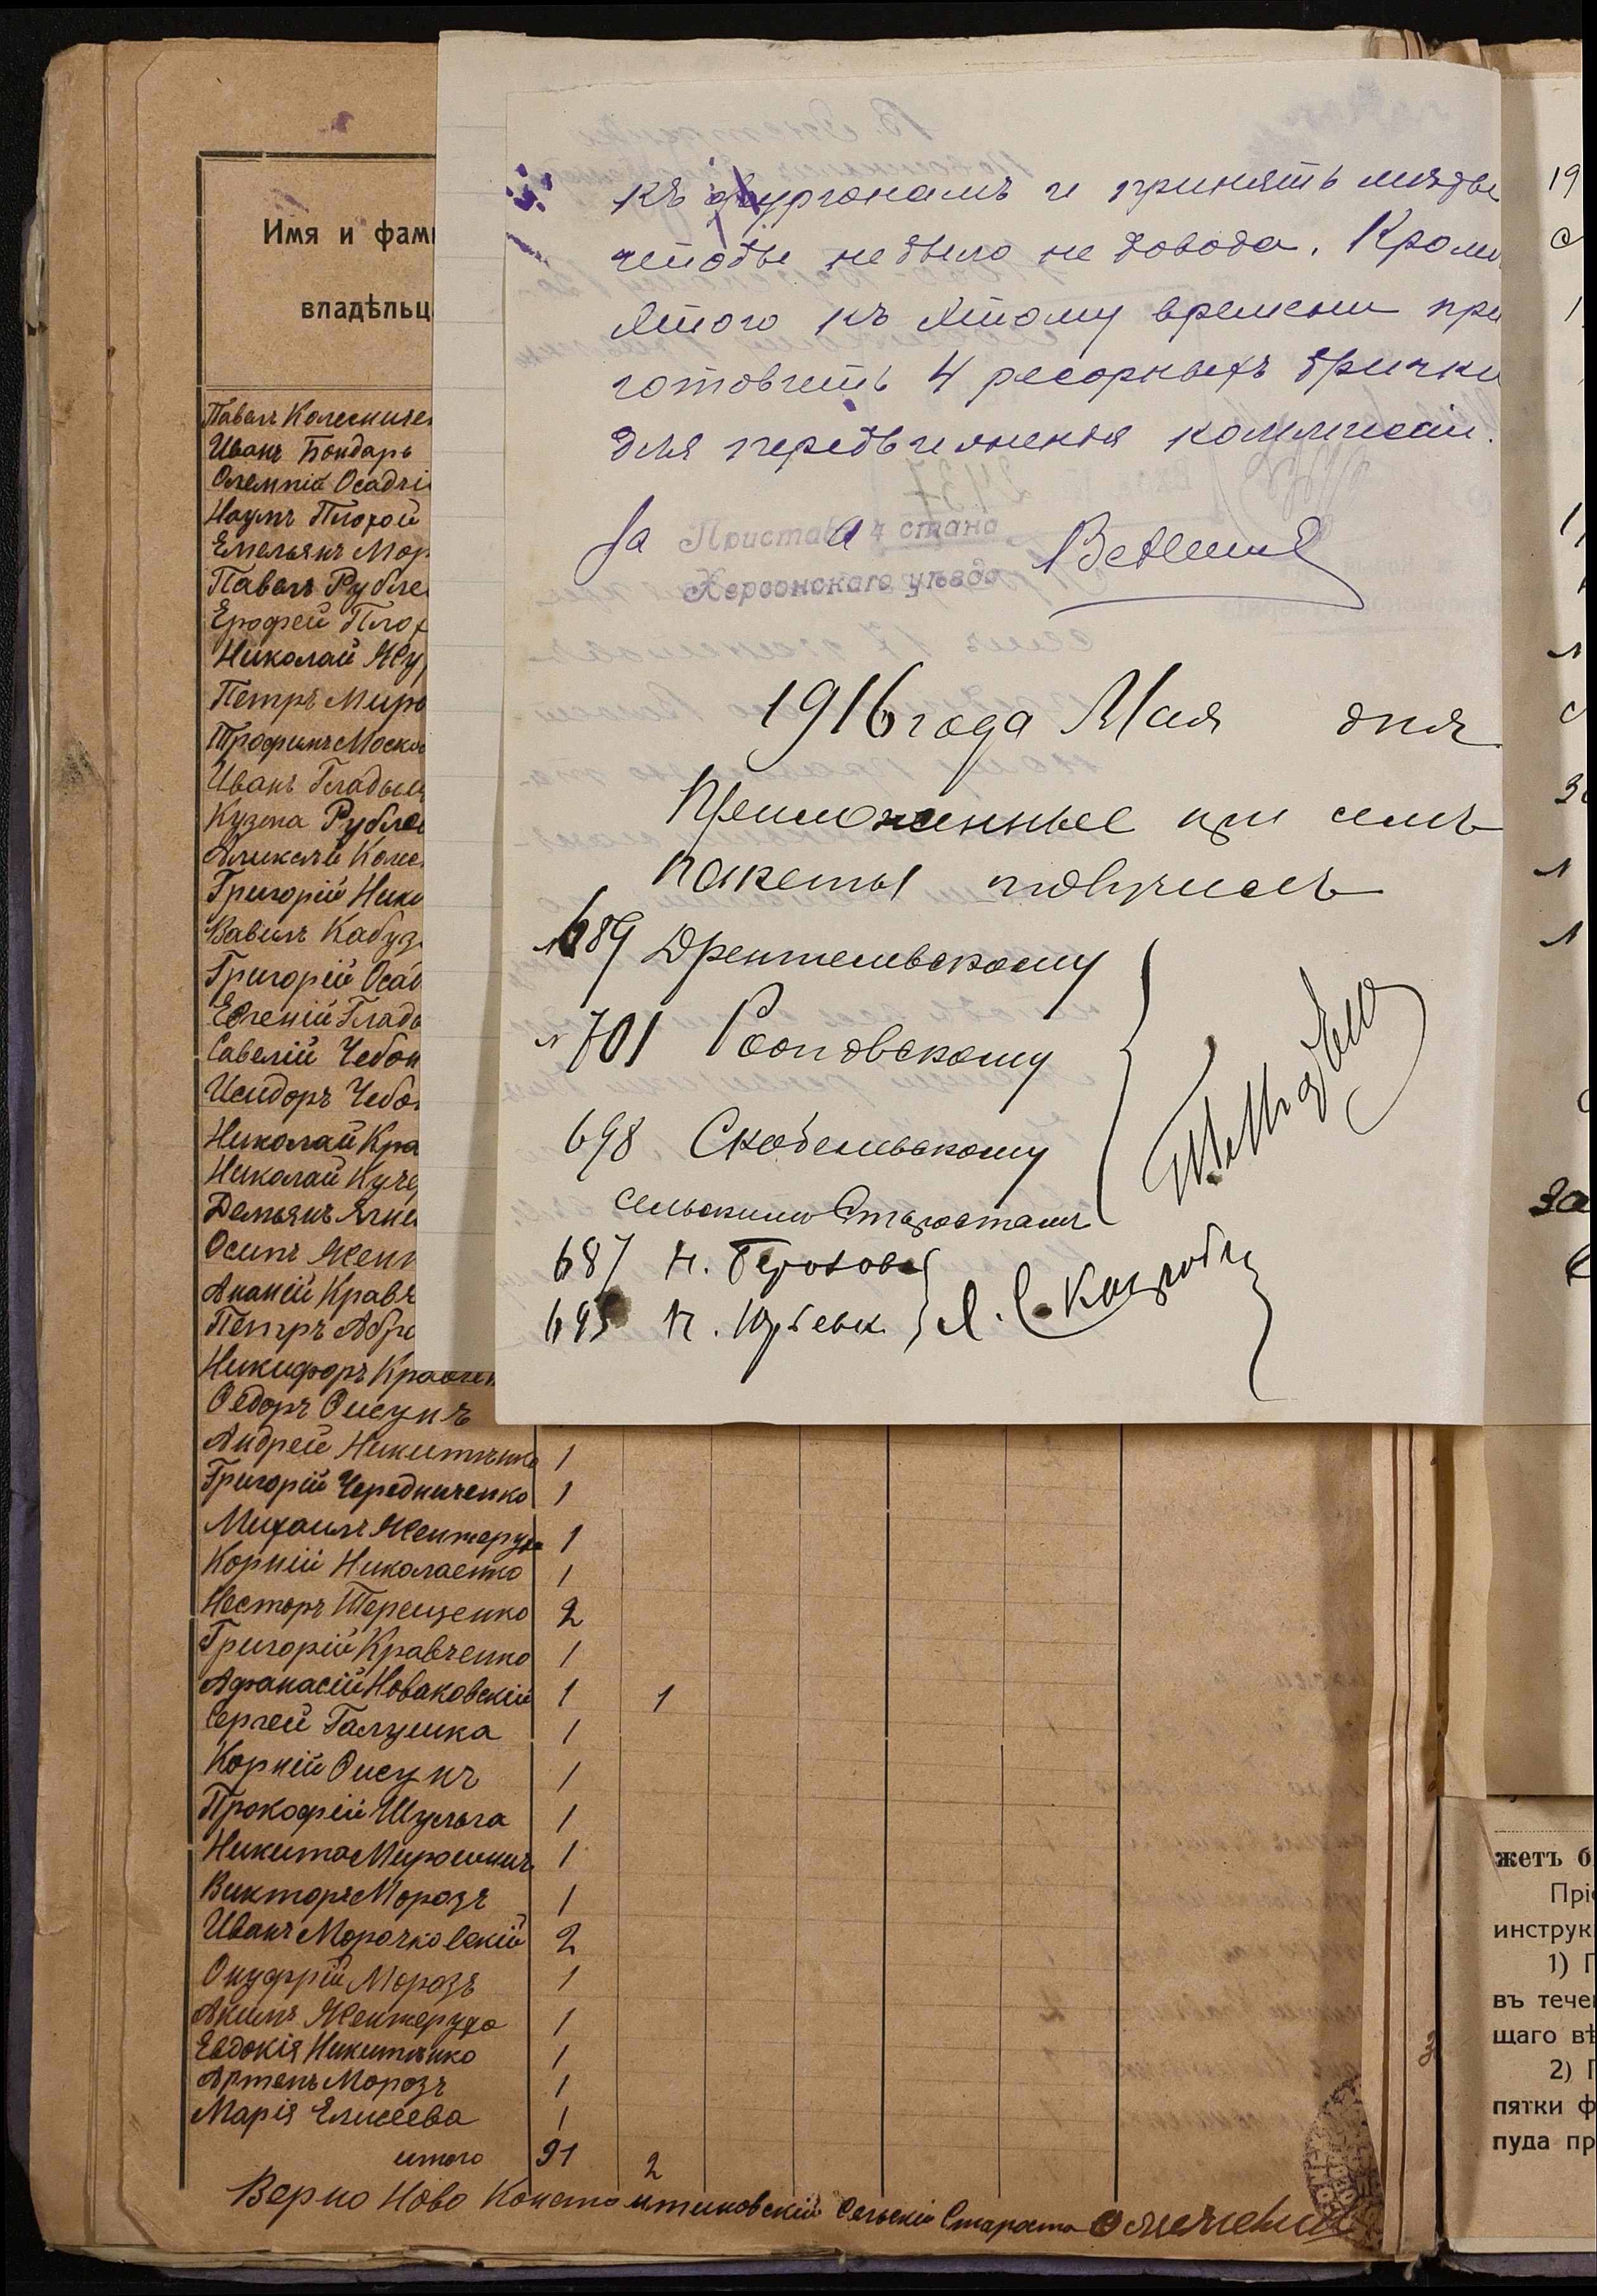 Имя и фам
владѣльц
Павелъ Колесниче
Иванъ Бондарь
Олемпіа Осадчі
Наумъ Плохой
Емельянъ Мор
Павелъ Рубле
Ерофей Плох
Николай Жу
Петръ Миро
Трофимъ Моско
Иванъ Гладыш
Кузма Рубле
Алексѣй Коле
Григорій Нико
Вавилъ Кабуз
Григорій Осад
Евгеній Гладо
Савелій Чебон
Исидоръ Чебо
Николай Кра
Николай Куче
Демьянъ Ягне
Осипъ Жент
Ананій Кравч
Петръ Абра
Никифоръ Кравчен
Ѳедоръ Онсунъ
Андрей Никитенко 1
Григорій Чередниченко 1
Михаилъ Жентеруха 1
Корній Николаенко 1
Несторъ Терещенко 2
Григорій Кравченко 1
Афанасій Новаковскій 1 1
Сергей Галушка 1
Корній Онсунъ 1
Прокофій Шульга 1
Никита Мирошнич 1
Викторъ Морозъ 1
Иванъ Морочковскій 2
Онуфрій Морозъ 1
Акимъ Жентеруха 1
Евдокія Никитенко 1
Артемъ Морозъ 1
Марія Елисеева 1
итого 91 2
Верно Ново Константиновскій Сельскій Староста
къ фургонамъ и принять мѣры
чтобы не было не довода. Кроме
этого къ этому времени при
готовить 4 ресорныхъ брички
для передвиженія коммисіи.
За Пристава 4 стана
Херсонскаго уѣзда
1916 года Мая дня
Приложенные при семъ
пакеты получилъ
№689 Дрентельевскому
№701 Роповскому
698 Скобельевскому
сельскимъ Старостамъ
687 к. Герохов
695 к. Кубевк.
жетъ б
Прі
инструк
1) П
въ тече
щаго вѣ
2) П
пятки ф
пуда пр